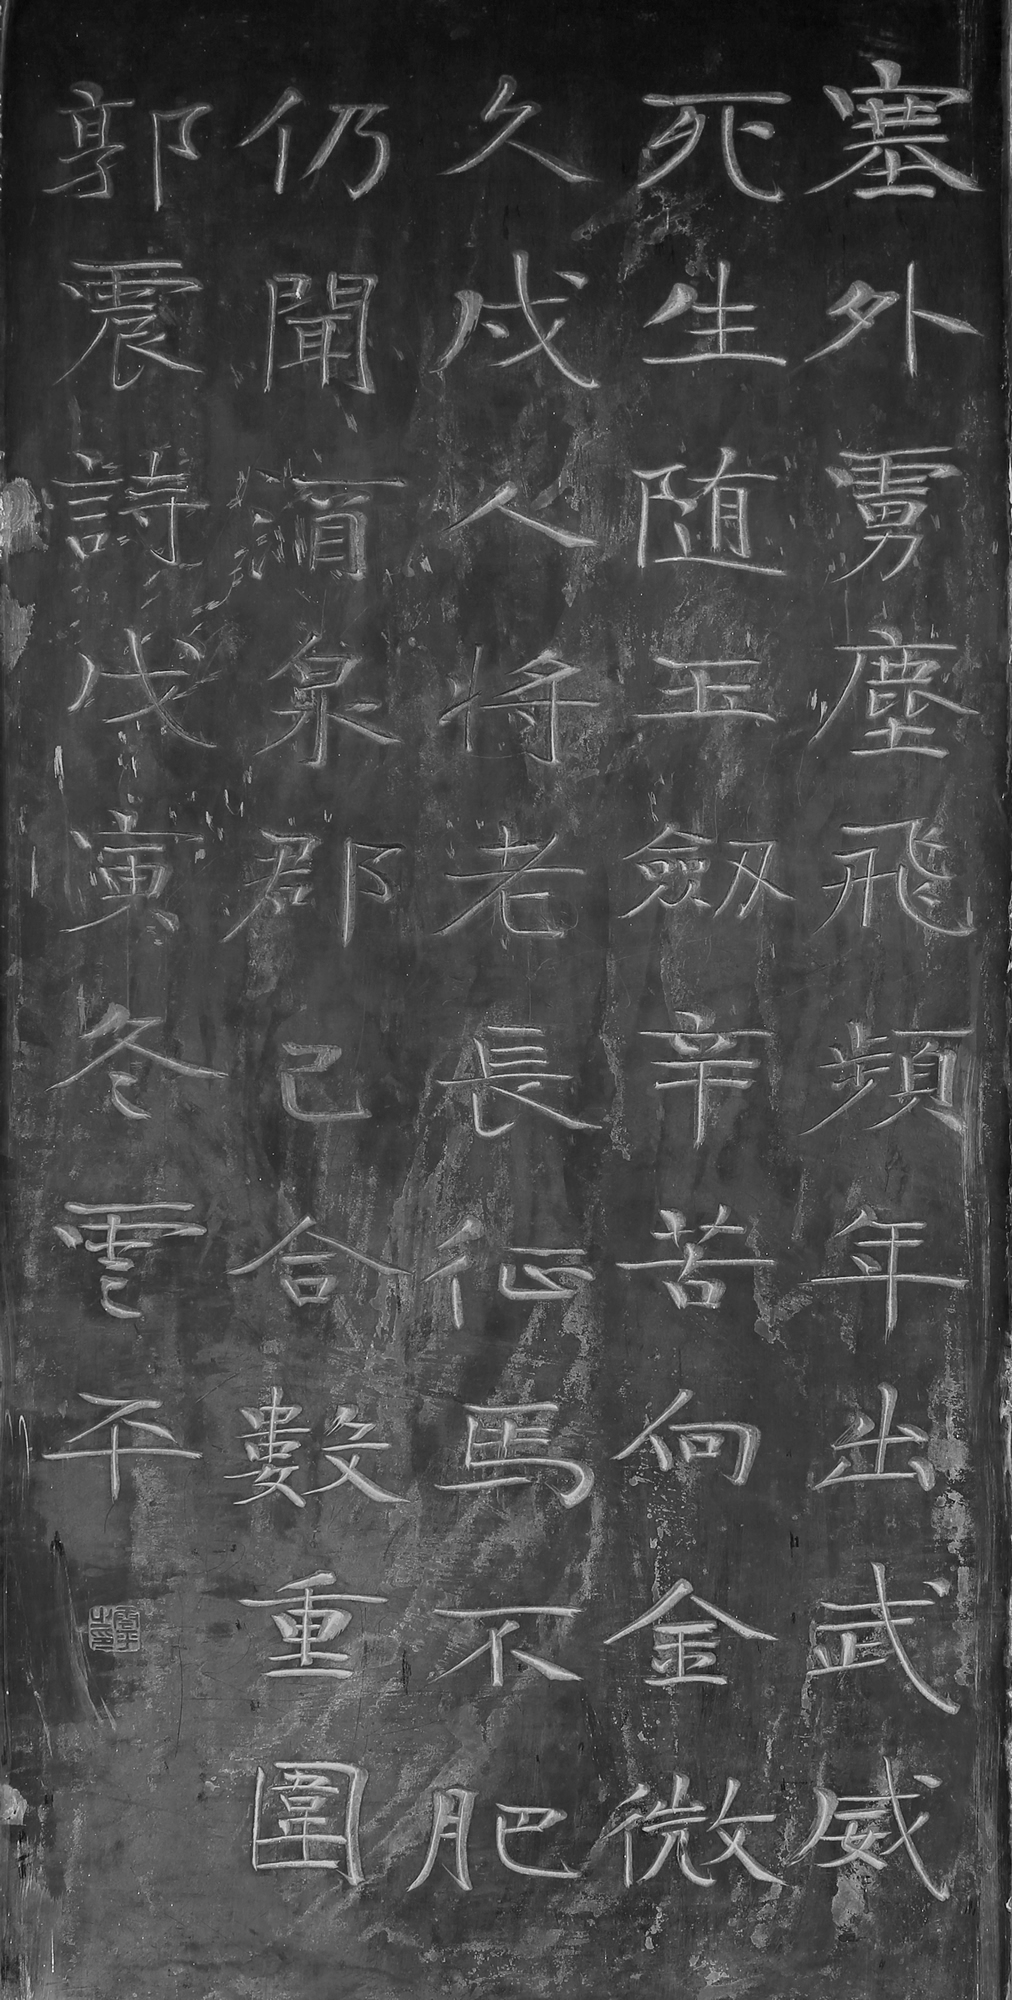 塞外虜塵飛頻年出武威
死生随玉劒辛苦向金微
久戍人将老長征馬不肥
仍聞酒泉郡已合數重圍
郭震詩戊寅冬雲平
雲平之印